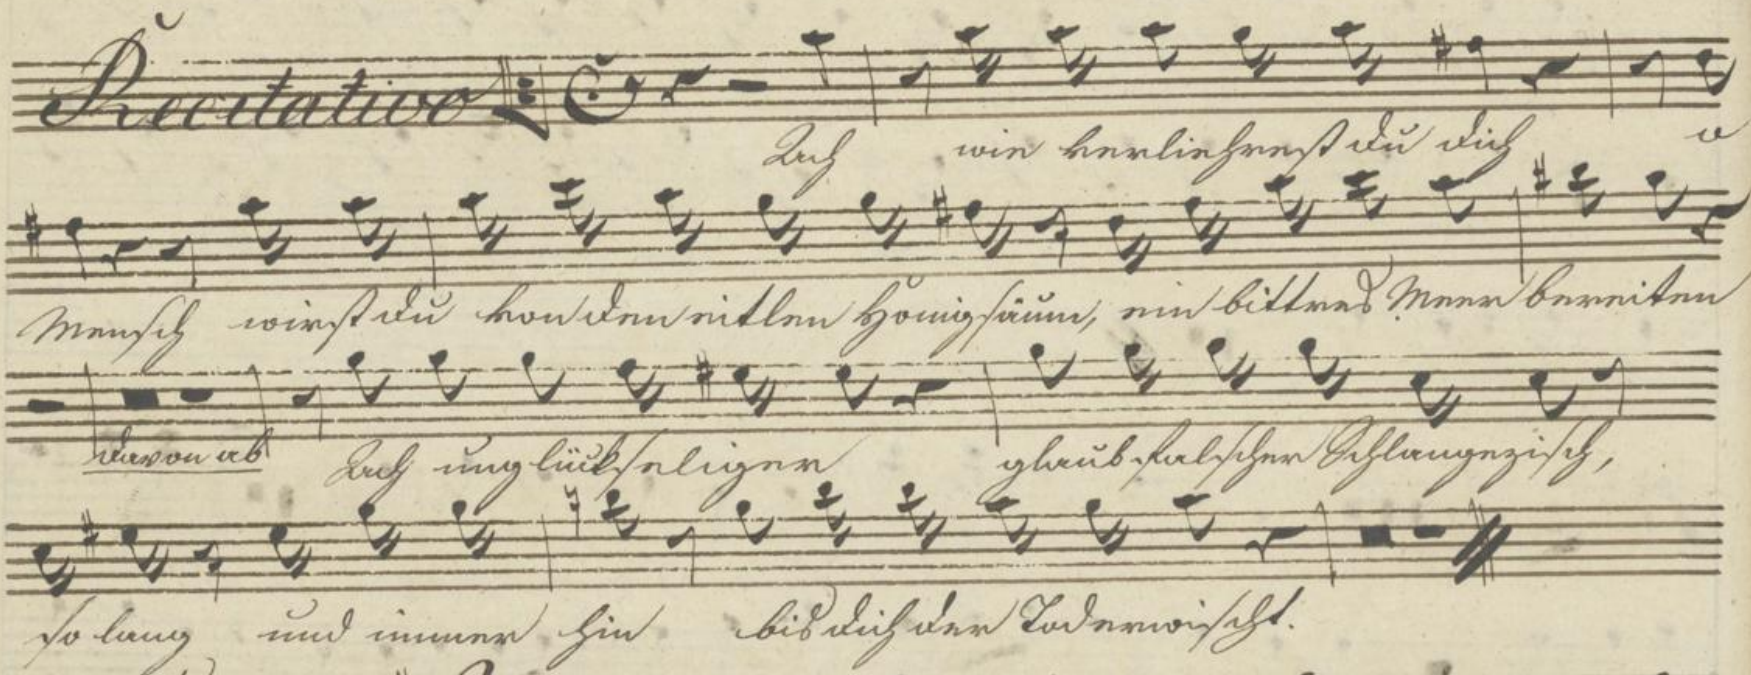 Recitativo
Ach wie verliehrest du dich o
Mensch wirst du von den eitlen Honigsäum, ein bittres Meer bereiten
davon ab Ach unglückseliger glaub falscher Schlangezisch,
so lang und immer hin bis dich der Tod erwischt.